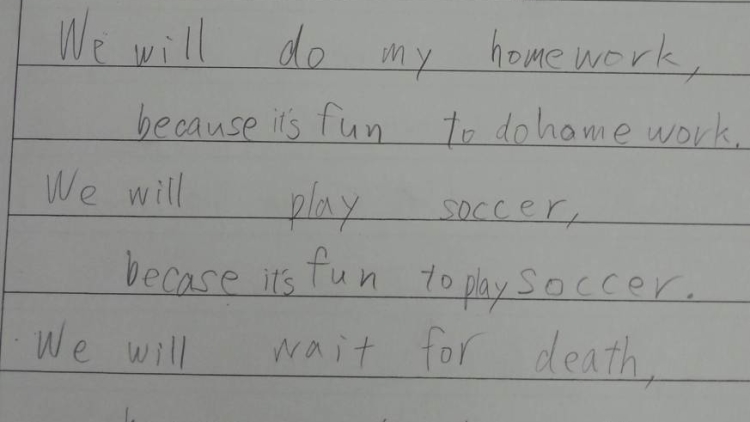 We will do my homework,
because it's fun to do hame work.
We will play soccer,
becase it's fun to play soccer.
We will wait for death,